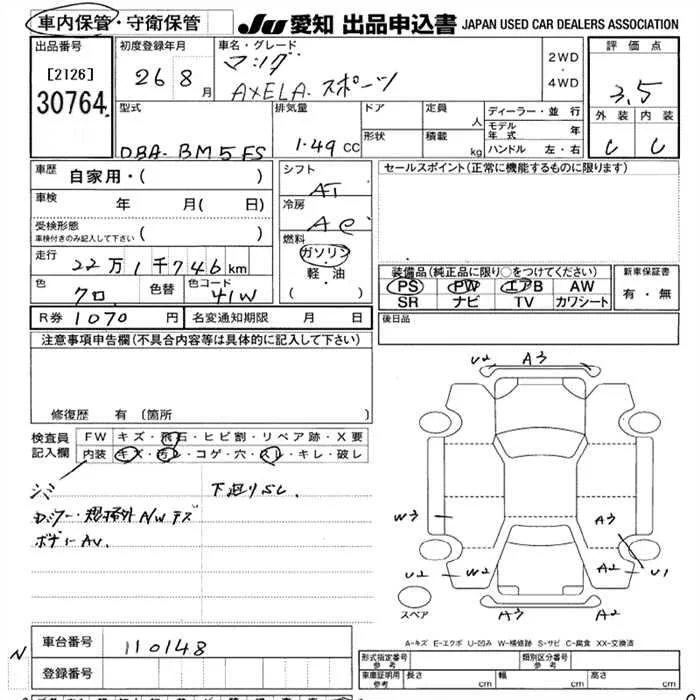 車内保管・守衛保管 JU 愛知 出品申込書 JAPAN USED CAR DEALERS ASSOCIATION
出品番号 初度登録年月 車名・グレード 評価点
[2126] 26 8月 マツダ 2WD・4WD 3.5
30764 AXELA スポーツ
型式 排気量 ドア 定員 人 ディーラー・並行 外装 内装
モデル年式 年 C C
DBA-BM5FS 1.49 CC 形状 積載 kg ハンドル 左・右
車歴 自家用・( ) シフト AT セールスポイント(正常に機能するものに限ります)
車検 年 月( 日) 冷房 AC
受検形態 車検付きのみ記入して下さい ( ) 燃料
走行 22万1千746km ガソリン・軽・油 ( )
装備品(純正品に限り○をつけてください) 新車保証書
色 クロ 色替 色コード 41W PS PW エアB AW 有・無
SR ナビ TV カワシート
R券 1070 円 名変通知期限 月 日 後日品
注意事項申告欄(不具合内容等は具体的に記入して下さい)
修復歴 有 (箇所
U2 A3
検査員記入欄 FW キズ・飛石・ヒビ割・リペア跡・X要
内装 キズ・汚レ・コゲ・穴・スレ・キレ・破レ
シミ 下廻りSし
W3 A3
ボデーAU.
U2 W2 A2 U1
スペア A3 A2
A-キズ E-エクボ U-凹み W-補修跡 S-サビ C-腐食 XX-交換済
N 車台番号 110148
登録番号
形式指定番号 参考 類別区分番号 参考
車庫証明用 参考 長さ cm 幅 cm 高さ cm